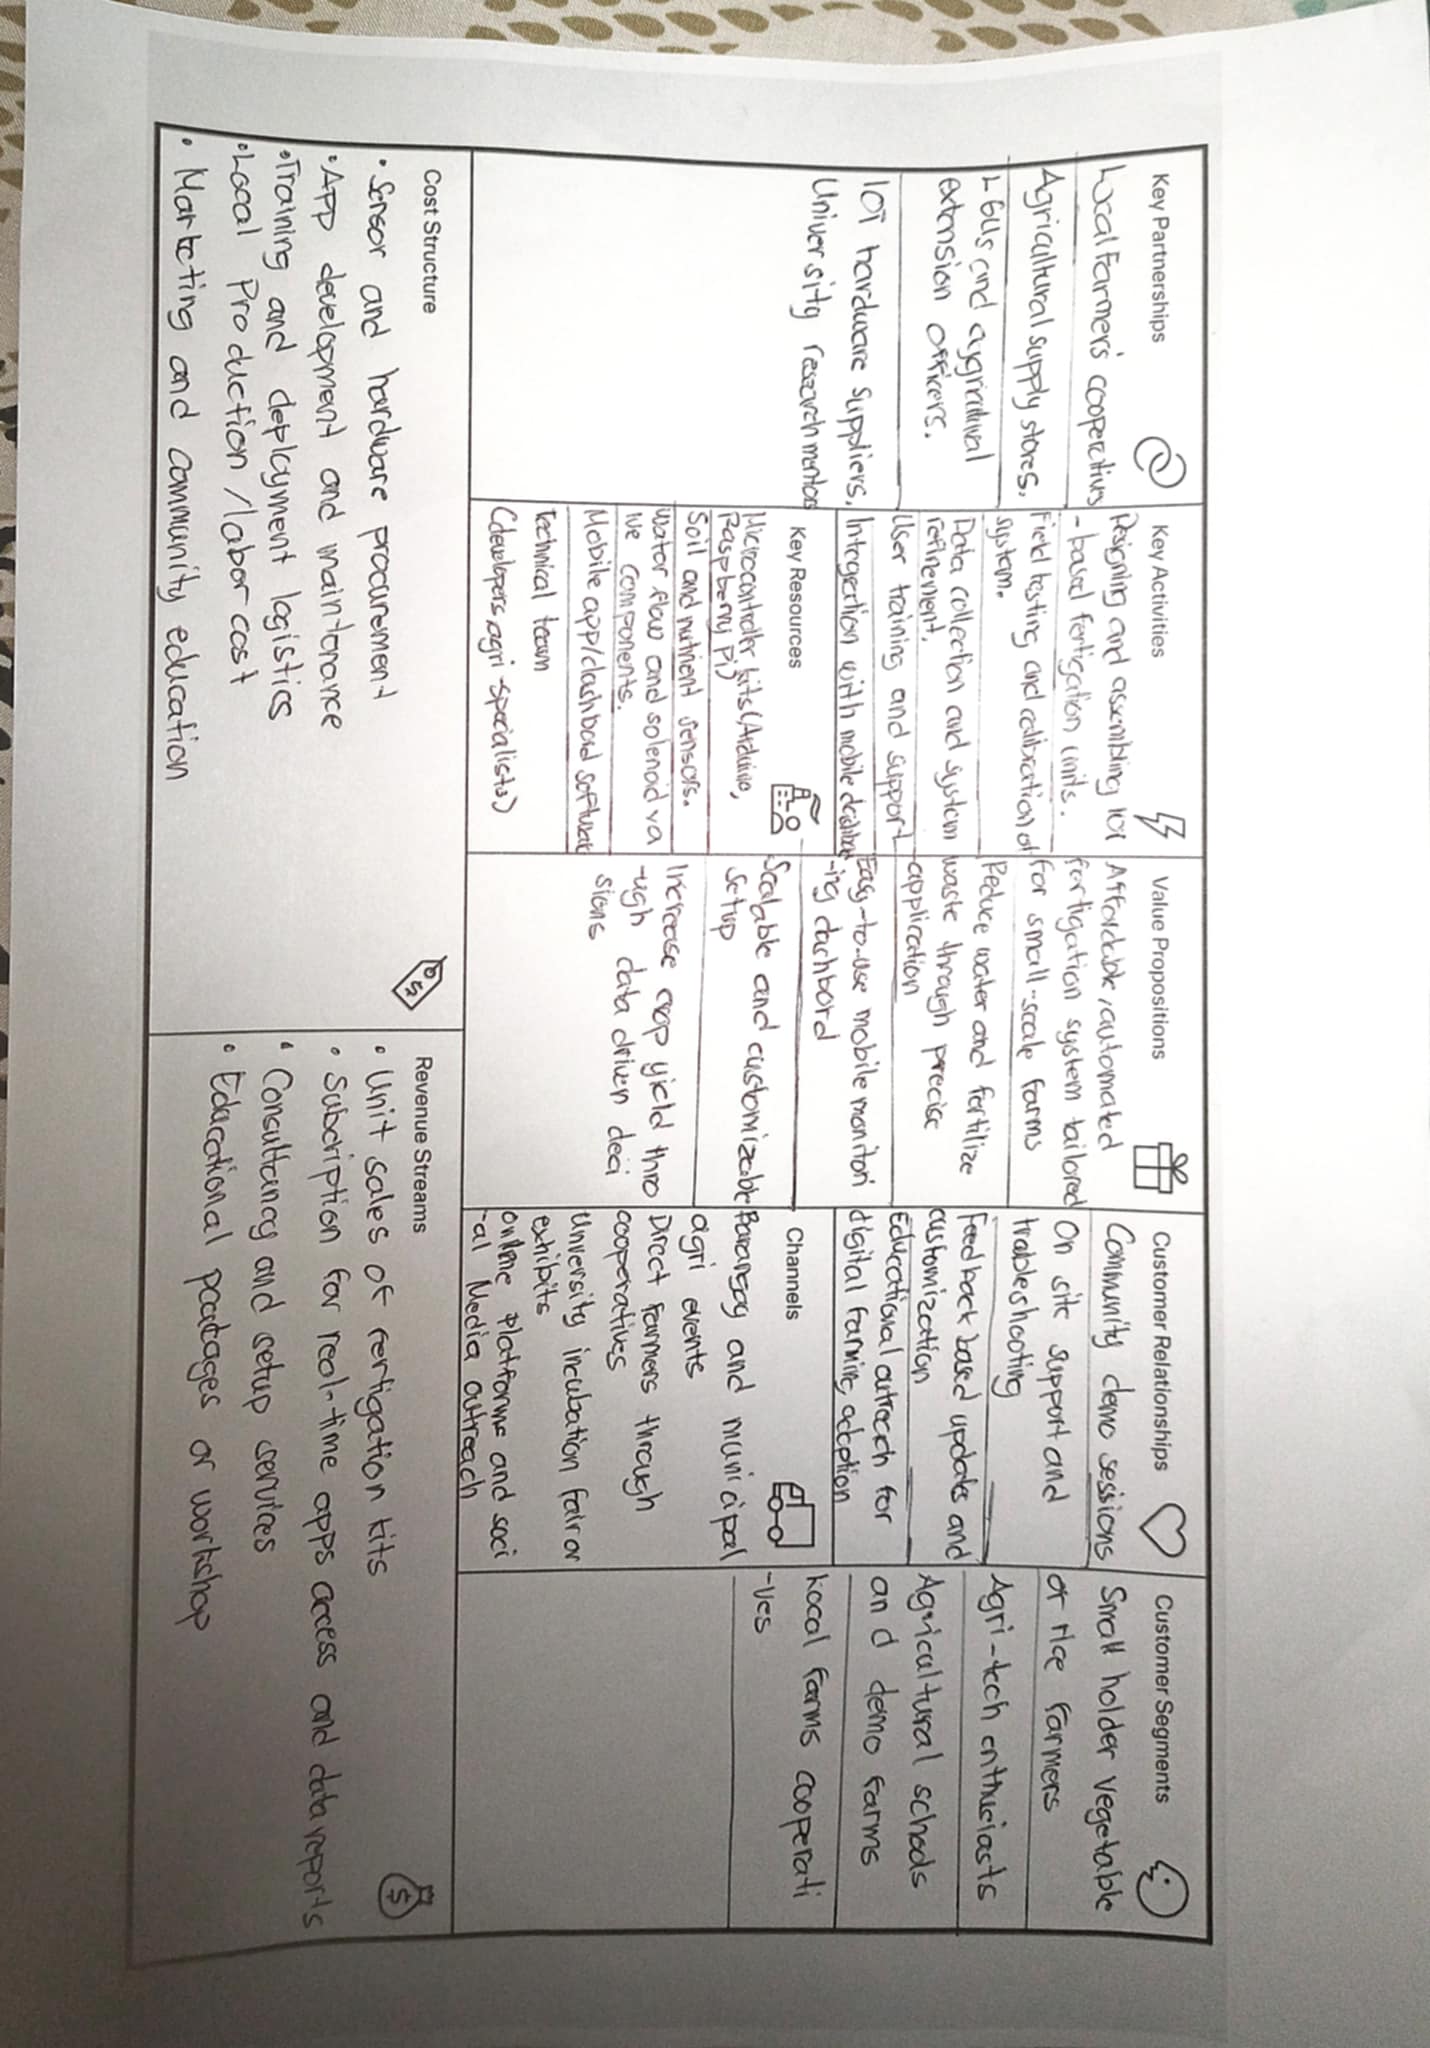 Key Partnerships
Local Farmer's cooperatives
Agricultural supply stores.
LGUs and agricultural
extension officers.
IOT hardware suppliers.
University research mentors
Key Activities
Designing and assembling IOT
-based fertigation units.
Field testing and calibration of
system.
Data collection and system
refinement.
User training and support
Integration with mobile dashboard
Key Resources
Microcontroller kits (Arduino,
Raspberry Pi)
Soil and nutrient sensors.
Water flow and solenoid va
lve components.
Mobile app/dashboad software
Technical team
(developers, agri-specialists)
Value Propositions
Affordable, automated
fertigation system tailored
for small-scale farms
Reduce water and fertilize
waste through precise
application
Easy-to-use mobile monitori
-ing dachbord
Scalable and customizable
setup
Increase crop yield thro
-ugh data driven deci
sions
Customer Relationships
Community demo sessions
On site support and
trableshooting
Feedback based updates and
customization
Educational outreach for
digital farming adoption
Channels
Barangay and municipal
agri events
Direct farmers through
cooperatives
University incubation fair or
exhibits
online platforms and soci
-al Media outreach
Customer Segments
Small holder vegetable
or rice farmers
Agri-tech enthuciasts
Agricultural schools
and demo farms
Local farms cooperati
-ves
Cost Structure
• Sensor and hardware procurement
• APP development and maintenance
• Training and deployment logistics
• Local Production /labor cost
• Marketing and community education
Revenue Streams
• Unit sales of fertigation kits
• Subcription for real-time apps access and data reports
• Consultancy and setup services
• Educational packages or workshop